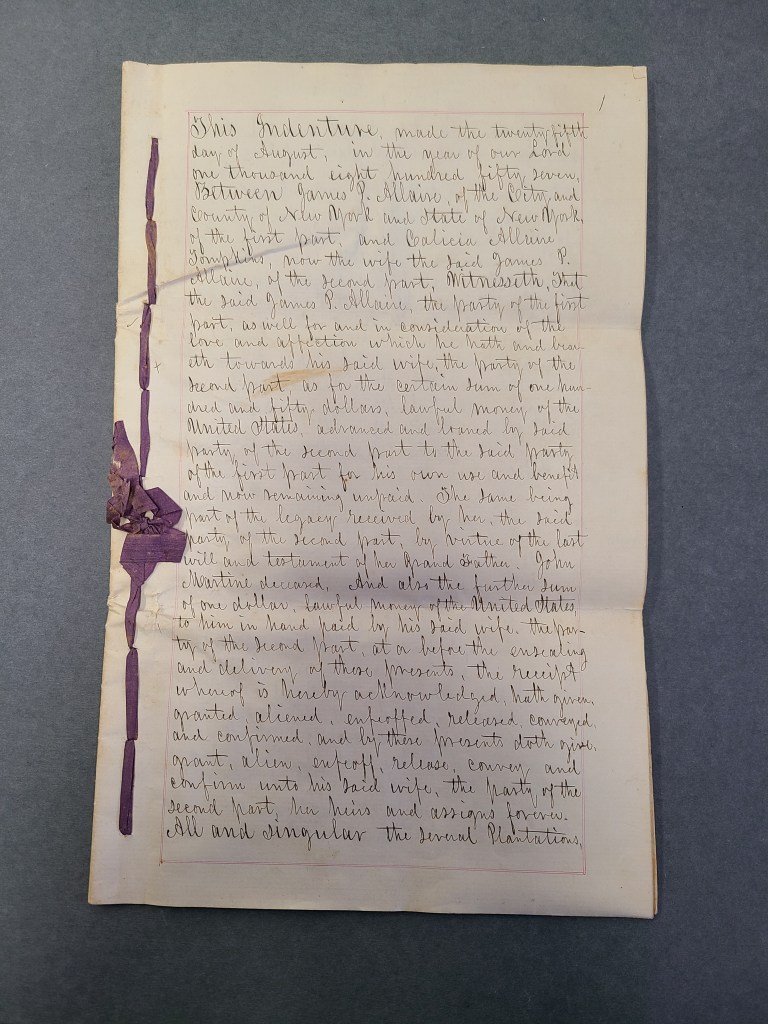 1
This Indenture, made the twenty fifth
day of August, in the year of our Lord
one thousand eight hundred fifty seven,
Between James P. Allaire, of the City and
County of New York and State of New York,
of the first part, and Calicia Allaire
Tompkins now the wife the said James P.
Allaire, of the second part, Witnesseth, That
the said James P. Allaire, the party of the first
part, as well for and in consideration of the
love and affection which he hath and bear-
eth towards his said wife, the party of the
second part as for the certain sum of one hun-
dred and fifty dollars, lawful money of the
United States, advanced and loaned by said
party of the second part to the said party
of the first part for his own use and benefit
and now remaining unpaid. The same being
part of the legacy received by her, the said
party of the second part, by virtue of the last
will and testament of her Grand Father. John
Martine deceased, And also the further sum
of one dollar, lawful money of the United States,
to him in hand paid by his said wife. the par-
ty of the second part, at or before the ensealing
and delivery of these presents, the receipt
whereof is hereby acknowledged, hath given,
granted, aliened, enfeoffed, released, conveyed,
and confirmed, and by these presents doth give,
grant, alien, enfeoff, release, convey and
confirm unto his said wife, the party of the
second part, her heirs and assigns forever.
All and singular the several Plantations,